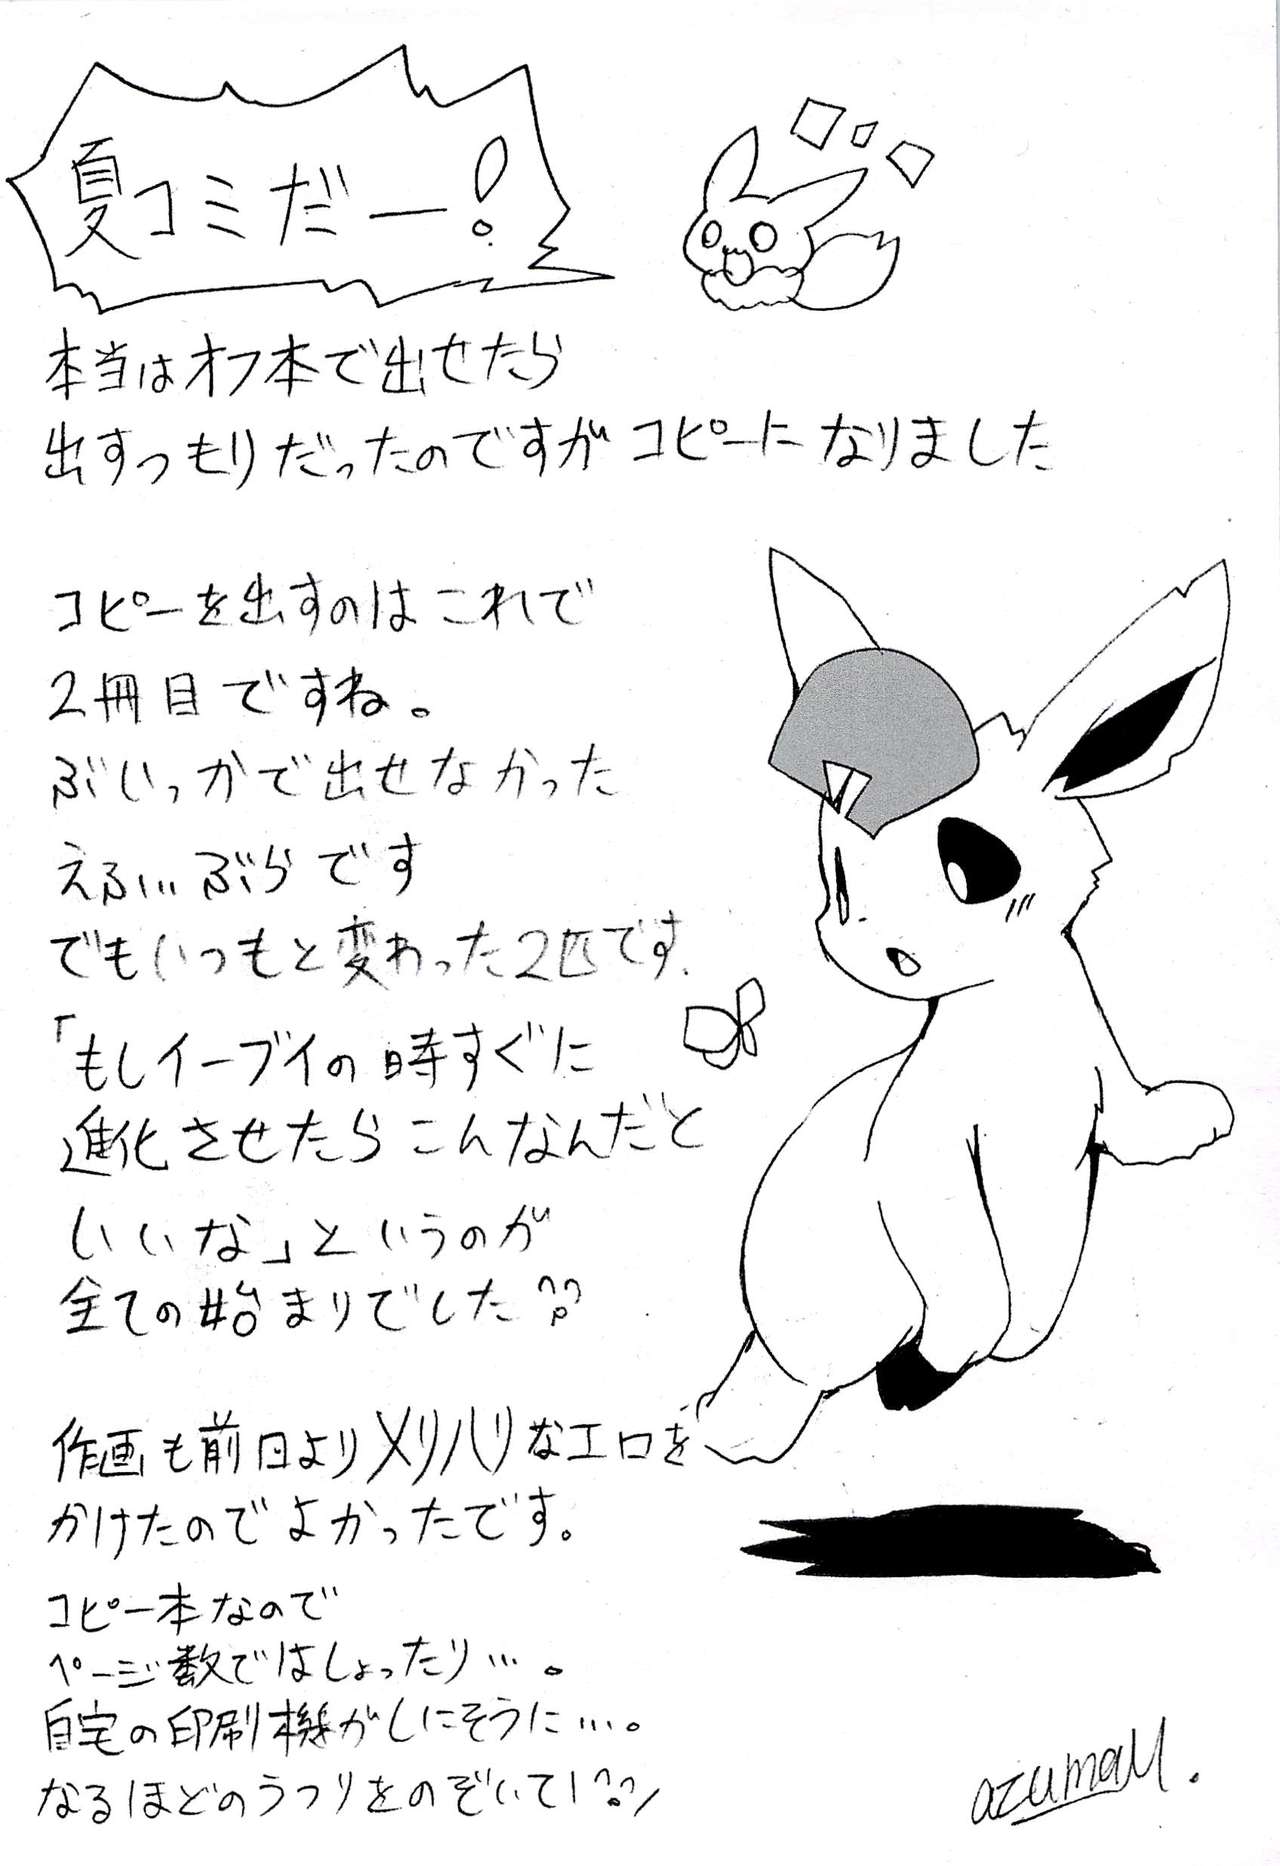 夏コミだー!
本当はオフ本で出せたら
出すつもりだったのですがコピーになりました
コピーを出すのはこれで
2冊目ですね。
ぶいっかで出せなかった
えふぃぶらです
でもいつもと変わった2匹です.
「もしイーブイの時すぐに
進化させたらこんなんだと
いいな」というのが
全ての始まりでした
作画も前日よりメリハリなエロを
かけたのでよかったです。
コピー本なので
ページ数ではしょったり…。
自宅の印刷機がしにそうに…。
なるほどのうつりをのぞいて!
azumaY.